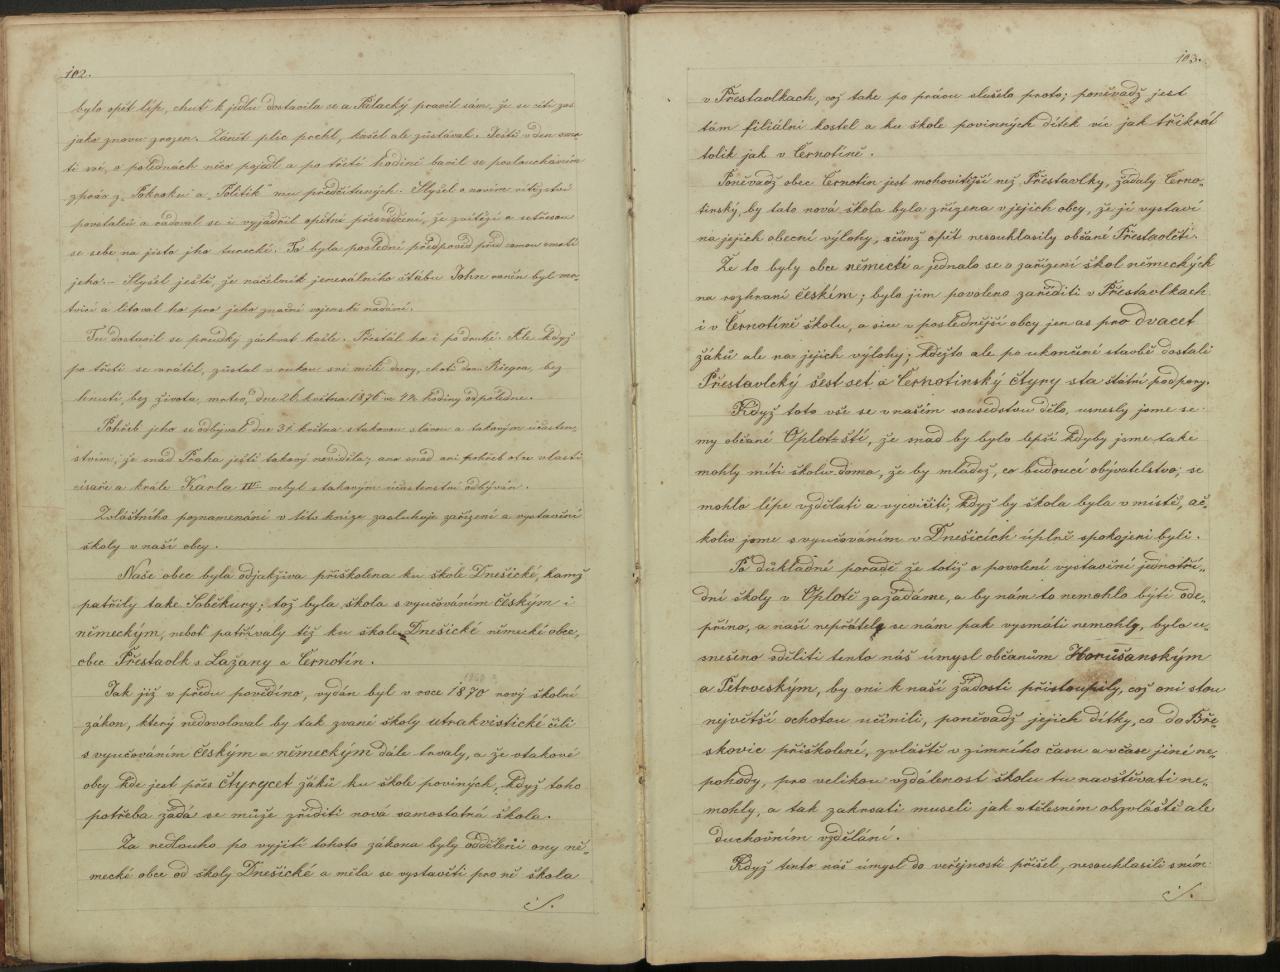 102.
bylo opět líp, chuť k jídlu dostavila se a Palacký pravil sám, že se cítí zas
jako znovu zrozen. Zánět plic prchl, kašel ale zůstával. Ještě v den smr-
ti své, o polednách něco pojedl a po třetí hodině bavil se posloucháním
zpráv z „Pokroku" a „Politik" mu předčítaných. Slyšel o novém vítězství
povstalců a radoval se i vyjádřil opětně přesvědčení, že zvítězí a setřesou
se sebe na jisto jho turecké. To byla poslední předpověd před samou smrtí
jeho. – Slyšel ještě, že náčelník jenerálního štábu John raněn byl mr-
tvicí a litoval ho pro jeho značné vojenské nadání.
Tu dostavil se prudký záchvat kašle. Přestál ho i po druhé. Ale když
po třetí se vrátil, zůstal v rukou své milé dcery, choti dra. Riegra, bez
hnutí, bez života, mrtev, dne 26. května 1876 ve 4½ hodiny odpoledne.
Pohřeb jeho se odbýval dne 31. května s takovou slávou a takovým účasten-
stvím, že snad Praha ještě takový neviděla; ano snad ani pohřeb otce vlasti
císaře a krále Karla IV. nebyl s takovým účastenství odbýván.
Zvláštního poznamenání v této knize zasluhuje zařízení a vystavění
školy v naší obcy.
Naše obec byla odjakživa přiškolena ku škole Dnešické, kamž
patřily také Soběkury; tož byla škola s vyučováním českým i
německým, neboť patřívaly též ku škole Dnešické německé obce,
obec Přestavlk s Lažany a Černotín.
Jak již v předu povědíno, vydán byl v roce 1870 nový školní
zákon, který nedovoloval by tak zvané školy utrakvistické čili
s vyučováním českým a německým dále trvaly, a že v takové
obcy kde jest přes čtyrycet žáků ku škole poviných, když toho
potřeba žádá se může zříditi nová samostatná škola.
Za nedlouho po vyjití tohoto zákona byly oddělení ony ně-
mecké obce od školy Dnešické a měla se vystavěti pro ně škola
103.
v Přestavlkach, což take po právu slušelo proto; poněvadž jest
tám filiální kostel a ku škole povinných dítek víc jak třikrát
tolik jak v Černotíně.
Poněvadž obec Černotín jest mohovitější než Přestavlky, žádaly Černo-
tinský, by tato nová škola byla zřízena v jejich obcy, že jí vystaví
na jejich obecní výlohy, sčímž opět nesouhlasily občané Přestavlčtí.
Že to byly obce německé a jednalo se o zařízení škol německých
na rozhraní českém; bylo jim povoleno zaříditi v Přestavlkach
i v Černotíně školu, a sice v poslednější obcy jen as pro dvacet
žáků ale na jejich výlohy; kdejto ale po ukončené stavbě dostali
Přestavlcký šest set a Černotinský čtyry sta státní podpory.
Když toto vše se v našem sousedstvu dělo, usnesly jsme se
my občané Oplot-ští, že snad by bylo lepší kdyby jsme take
mohly míti školu doma, že by mládež, co budoucí obyvatelstvo, se
mohlo lépe vzdělati a vycvičiti, když by škola byla v místě, ač-
koliv jsme s vyučováním v Dnešicích úplně spokojeni byli.
Po důkladné poradě že totiž o povolení vystavění jednotří-
dní školy v Oplotě zažádáme, a by nám to nemohlo býti ode-
příno, a naší nepřátelé se nám pak vysmáti nemohly, bylo u-
snešeno sděliti tento náš úmysl občanům Horušanským
a Petrovským, by oni k naší žádosti přistoupily, což oni stou
největší ochotou učinili, poněvadž jejich dítky, co do Bře-
skovic přiškolené, zvláště v zimního času a včase jiné ne-
pohody, pro velikou vzdálenost školu tu navštěvati ne-
mohly, a tak zakrsati museli jak v tělesném obzvláště ale
duchovním vzdělání.
Když tento náš úmysl do veřejnosti přišel, nesouhlasili sním